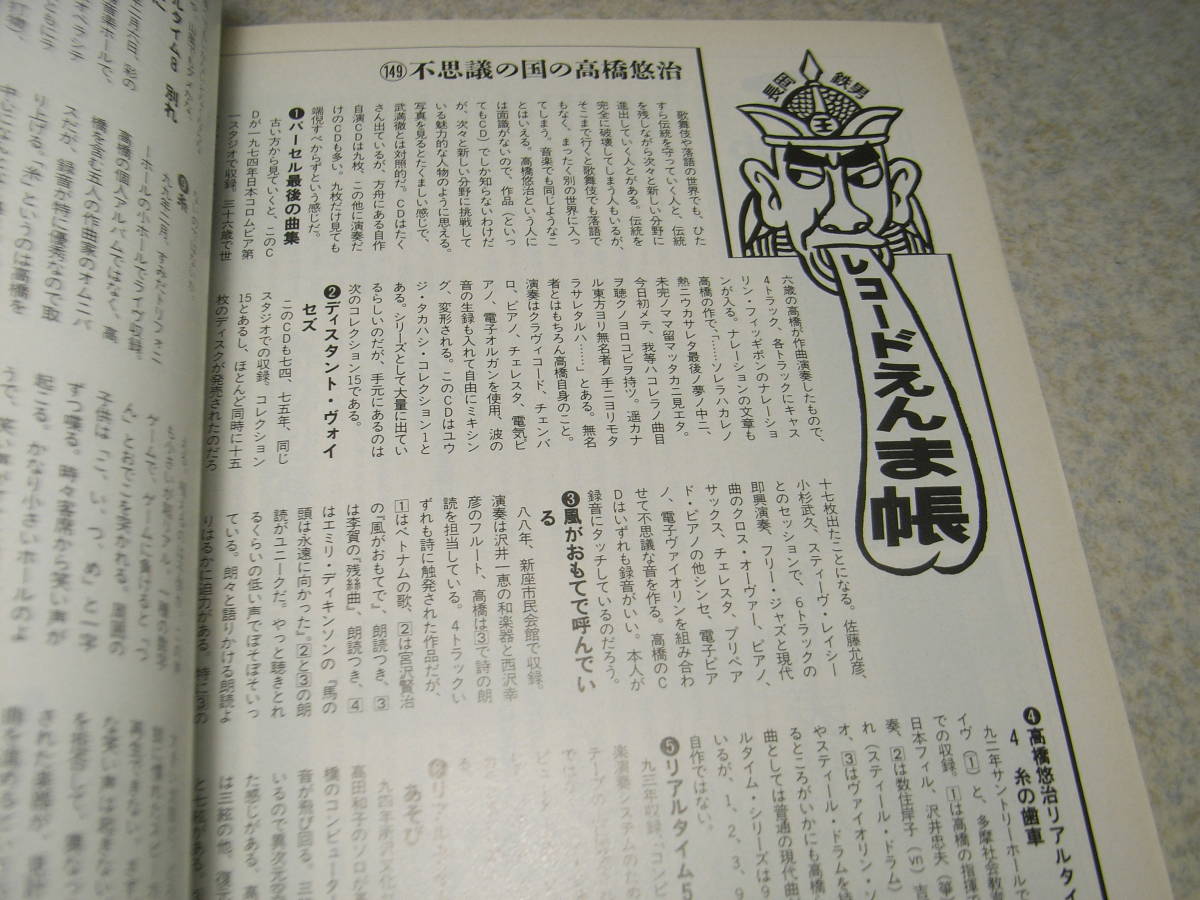 レコードえんま帳
長岡
鉄男
王
⑭⑨不思議の国の高橋悠治
歌舞伎や落語の世界でも、ひた
すら伝統を守っていく人と、伝統
を残しながら次々と新しい分野に
進出していく人とがある。伝統を
完全に破壊してしまう人もいるが、
そこまで行くと歌舞伎でも落語で
もなく、まったく別の世界に入っ
てしまう。音楽でも同じようなこ
とはいえる。高橋悠治という人に
は面識がないので、作品（といっ
てもCD）でしか知らないわけだ
が、次々と新しい分野に挑戦して
いる魅力的な人物のように思える。
写真を見るとたくましい感じで、
武満徹とは対照的だ。CDはたく
さん出ているが、方舟にある自作
自演CDは九枚、この他に演奏だ
けのCDも多い。九枚だけ見ても
端倪すべからずという感じだ。
❶パーセル最後の曲集
古い方から見ていくと、このC
Dが一九七四年日本コロムビア第
一スタジオで収録。三十六歳で世
六歳の高橋が作曲演奏したもので、
4トラック、各トラックにキャス
リン・フィッギボンのナレーショ
ンが入る。ナレーションの文章も
高橋の作で、「……ソレラハカレノ
熱ニウカサレタ最後ノ夢ノ中ニ、
未完ノママ留マッタカニ見エタ。
今日初メテ、我等ハコレラノ曲目
ヲ聴クノヨロコビヲ持ツ。遥カナ
ル東方ヨリ無名者ノ手ニヨリモタ
ラサレタルハ……」とある。無名
者とはもちろん高橋自身のこと。
演奏はクラヴィコード、チェンバ
ロ、ピアノ、チェレスタ、電気ピ
アノ、電子オルガンを使用、波の
音の生録も入れて自由にミキシン
グ、変形される。このCDはユウ
ジ・タカハシ・コレクション1と
ある。シリーズとして大量に出てい
るらしいのだが、手元にあるのは
次のコレクション15である。
❷ディスタント・ヴォイ
セズ
このCDも七四、七五年、同じ
スタジオでの収録。コレクション
15とあるし、ほとんど同時に十五
枚のディスクが発売されたのだろ
十七枚出たことになる。佐藤允彦、
小杉武久、スティーヴ・レイシー
とのセッションで、6トラックの
即興演奏、フリー・ジャズと現代
曲のクロス・オーヴァー、ピアノ、
サックス、チェレスタ、プリペア
ド・ピアノの他シンセ、電子ピア
ノ、電子ヴァイオリンを組み合わ
せて不思議な音を作る。高橋のC
Dはいずれも録音がいい。本人が
録音にタッチしているのだろう。
❸風がおもてで呼んでい
る
八八年、新座市民会館で収録。
演奏は沢井一恵の和楽器と西沢幸
彦のフルート、高橋は③で詩の朗
読を担当している。4トラックい
ずれも詩に触発された作品だが、
①はベトナムの歌、②は宮沢賢治
の『風がおもてで』、朗読つき、③
は李賀の『残絲曲』、朗読つき、④
はエミリ・ディキンソンの『馬の
頭は永遠に向かった』。②と③の朗
読がユニークだ。やっと聴きとれ
るくらいの低い声でぼそぼそいっ
ている。朗々と語りかける朗読よ
りはるかに迫力がある。特に③の
❹高橋悠治リアルタイ
4 糸の歯車
九二年サントリーホールで
イヴ（①）と、多摩社会教
での収録。①は高橋の指揮で
日本フィル、沢井忠夫（箏
奏、②は数住岸子（vn）吉
れ（スティール・ドラム）
オ、③はヴァイオリン・ソ
やスティール・ドラムを持
るところがいかにも高橋
曲としては普通の現代曲
ルタイム・シリーズは9
いるが、1、2、3、9
自作ではない。
❺リアルタイム5
九三年収録、「コンピ
楽演奏システムのため
あそび
九四年所沢文化
高田和子のソロが
橋のコンピュータ
音が飛び回る。三
いるので異次元空
た感じがある。高
は三絃の他、復元
と七絃がある
ルタイム8 別れ
二月六日、彩の
音楽ホールで、
ーホールの小ホールでライヴ収録。
高橋の個人アルバムではなく、高
橋を含む五人の作曲家のオムニバ
スだが、録音が特に優秀なので取
り上げる「糸」というのは高橋を
ゲームで、ゲームに負けると、「つ
子供は「こ、い、つ、め」と一字
ずつ喋る。時々客席から笑い声が
起こる。かなり小さいホールのよ